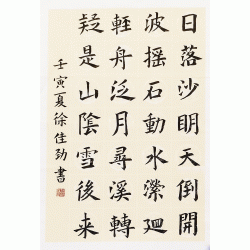 日落沙明天倒開
波摇石動水縈廻
輕舟泛月尋溪轉
疑是山陰雪後来
壬寅夏徐佳劲書